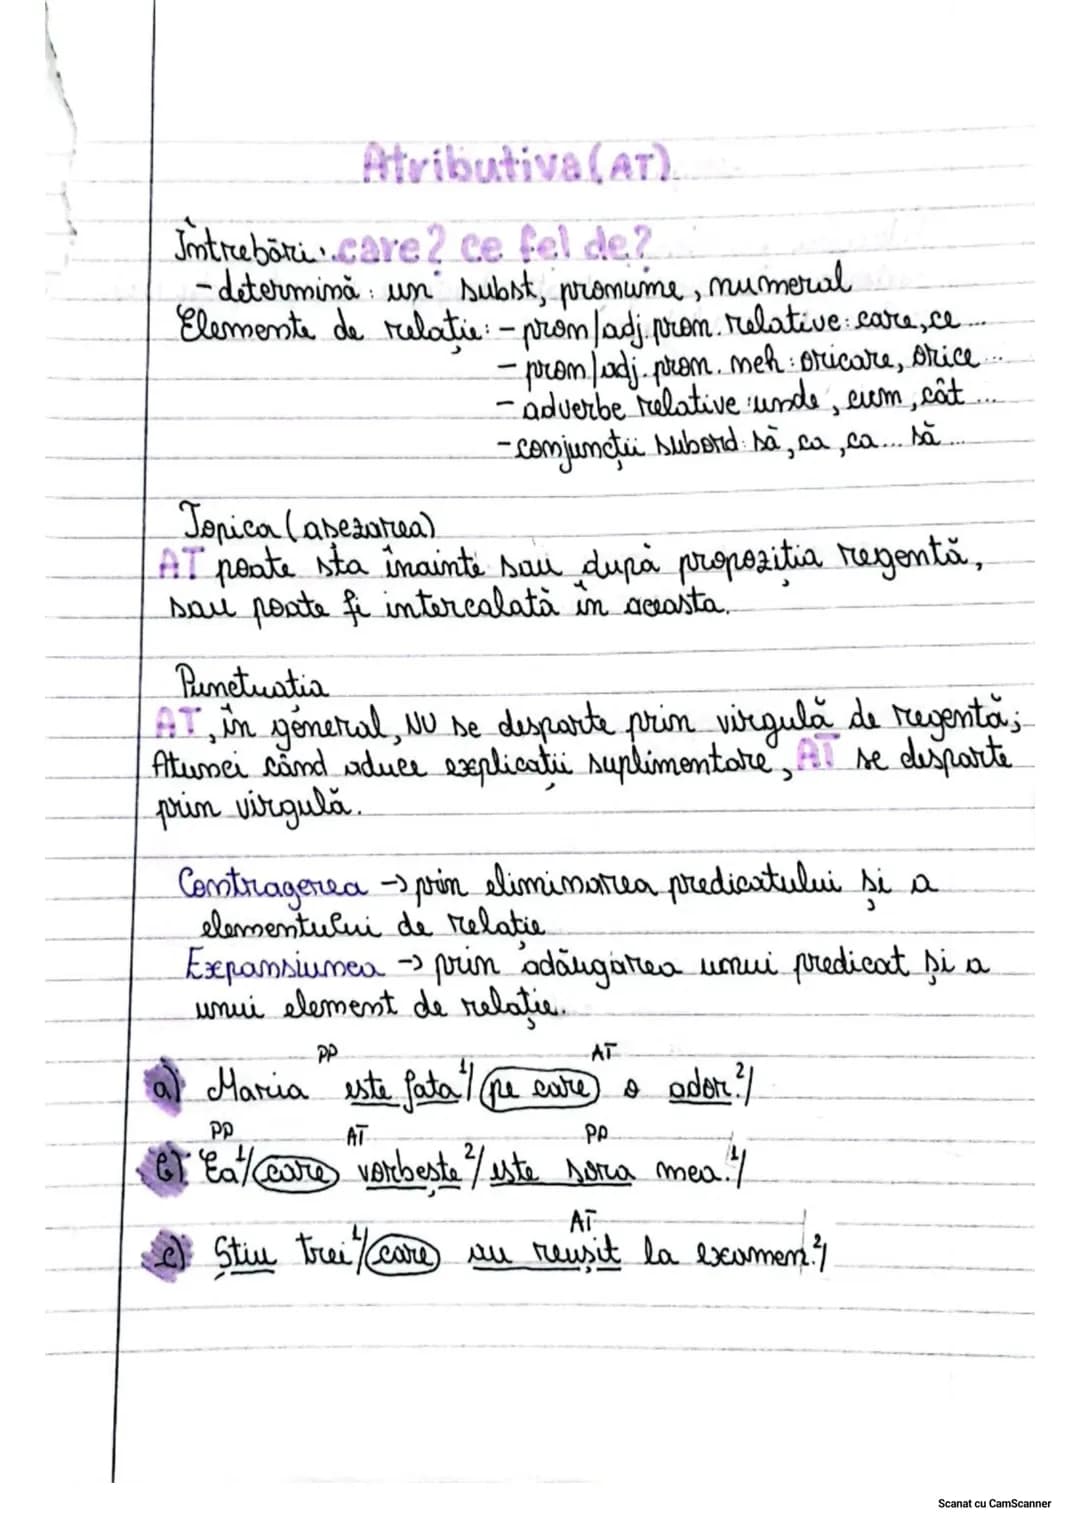 Atributiva (AT)
Întrebări: care? ce fel de?
- determină: un subst, pronume, numeral
Elemente de relație: - pron/adj. pron. relative: care, ce ...
- pron/adj. pron. neh: oricare, orice ...
- adverbe relative: unde, cum, cât ...
- conjuncții subord: să, ca, ca... să ...
Topica (așezarea)
AT poate sta înainte sau după propoziția regentă,
sau poate fi intercalată în aceasta.
Punctuatia
AT, în general, NU se desparte prin virgulă de regentă;
Atunci când aduce explicații suplimentare, AT se desparte
prin virgulă.
Contragerea -> prin eliminarea predicatului și a
elementului de relație
Expansiunea -> prin adăugarea unui predicat și a
unui element de relație.
PP AT
a) Maria este fata¹/ pe care o ador.²/
PP AT PP
b) Ea¹/ care vorbește²/ este sora mea.¹/
AT
c) Știu trei¹/ care au reușit la examen.²/
Scanat cu CamScanner